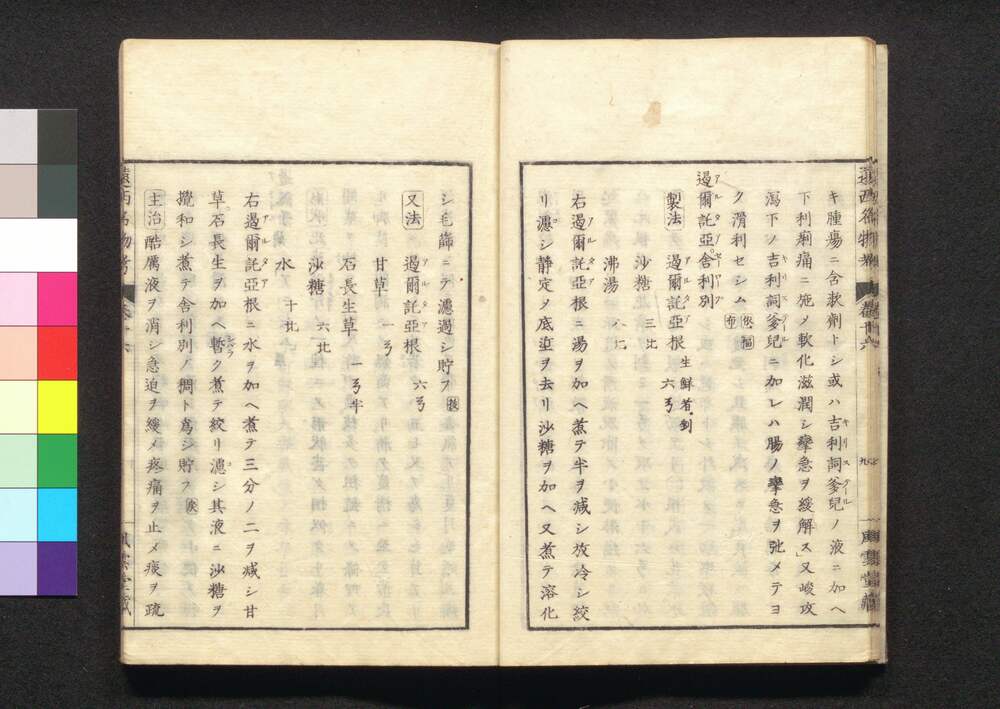 キ腫瘍ニ含漱劑トシ或ハ吉利詞爹兒ノ液ニ加ヘ
下利痢痛ニ施メ軟化滋潤シ攣急ヲ緩解ス」又峻攻
瀉下ノ吉利詞爹兒ニ加レハ腸ノ攣急ヲ弛メテヨ
ク滑利セシム
過爾託亞舎利別
製法 過爾託亞根 生鮮者剉 六弓
沙糖 三比
沸湯 八比
右過爾託亞根ニ湯ヲ加ヘ煮テ半ヲ減シ放冷シ絞
リ漉シ静定メ底垽ヲ去リ沙糖ヲ加ヘ又煮テ溶化
シ毛篩ニテ濾過シ貯フ
又法 過爾託亞根 六弓
甘草 一弓
石長生草 一弓半
沙糖 六比
水 十比
右過爾託亞根ニ水ヲ加ヘ煮テ三分ノ二ヲ減シ甘
草石長生ヲ加ヘ暫ク煮テ絞リ漉シ其液ニ沙糖ヲ
攪和シ煮テ舎利別ノ稠ト爲シ貯フ
主治 酷厲液ヲ消シ急迫ヲ緩メ疼痛ヲ止メ痰ヲ疏